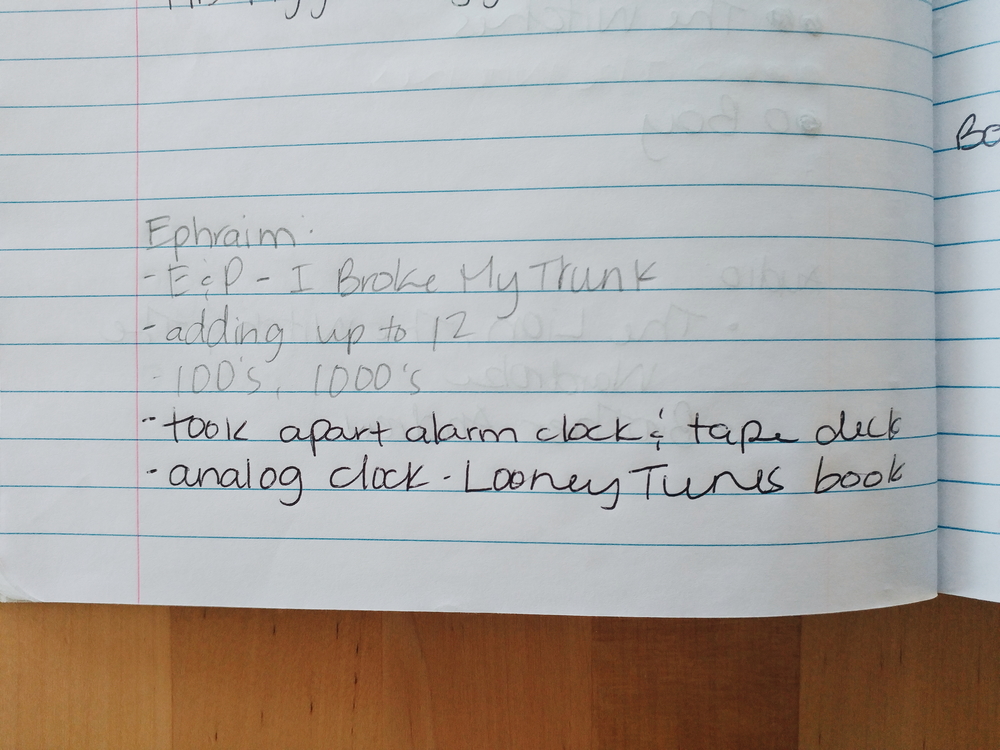 Bo
Ephraim:
- E & P - I Broke My Trunk
- adding up to 12
- 100's, 1000's
- took apart alarm clock & tape deck
- analog clock - Looney Tunes book